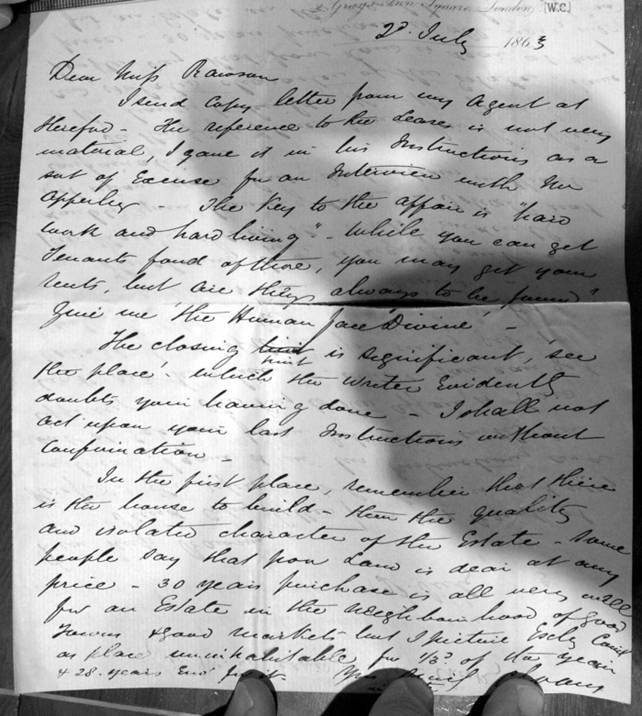 Gray's Inn Square, London, (W.C.)
2d July 1863
Dear Miss Rawson
I send Copy letter from my Agent at
Hereford - The reference to the Leases is not very
material, I gave it in his Instructions as a
sort of Excuse for an Interview with Mr
Apperley - The Key to the affair is "hard
work and hard living" - While you can get
Tenants fond of those, you may get your
rents, but are they always to be found"
Give me 'the Human face Divine' -
The closing hint is significant, 'see
the place' - which the writer Evidently
doubts your having done - I shall not
act upon your last Instructions without
Confirmation -
In the first place, remember that there
is the house to build - then the quality
and isolated character of the Estate - some
people say that poor Land is dear at any
price - 30 years purchase is all very well
for an Estate in the neighbourhood of good
Towns & good markets but I picture Court
as place uninhabitable for 1/3d of the year
& 28 years for it